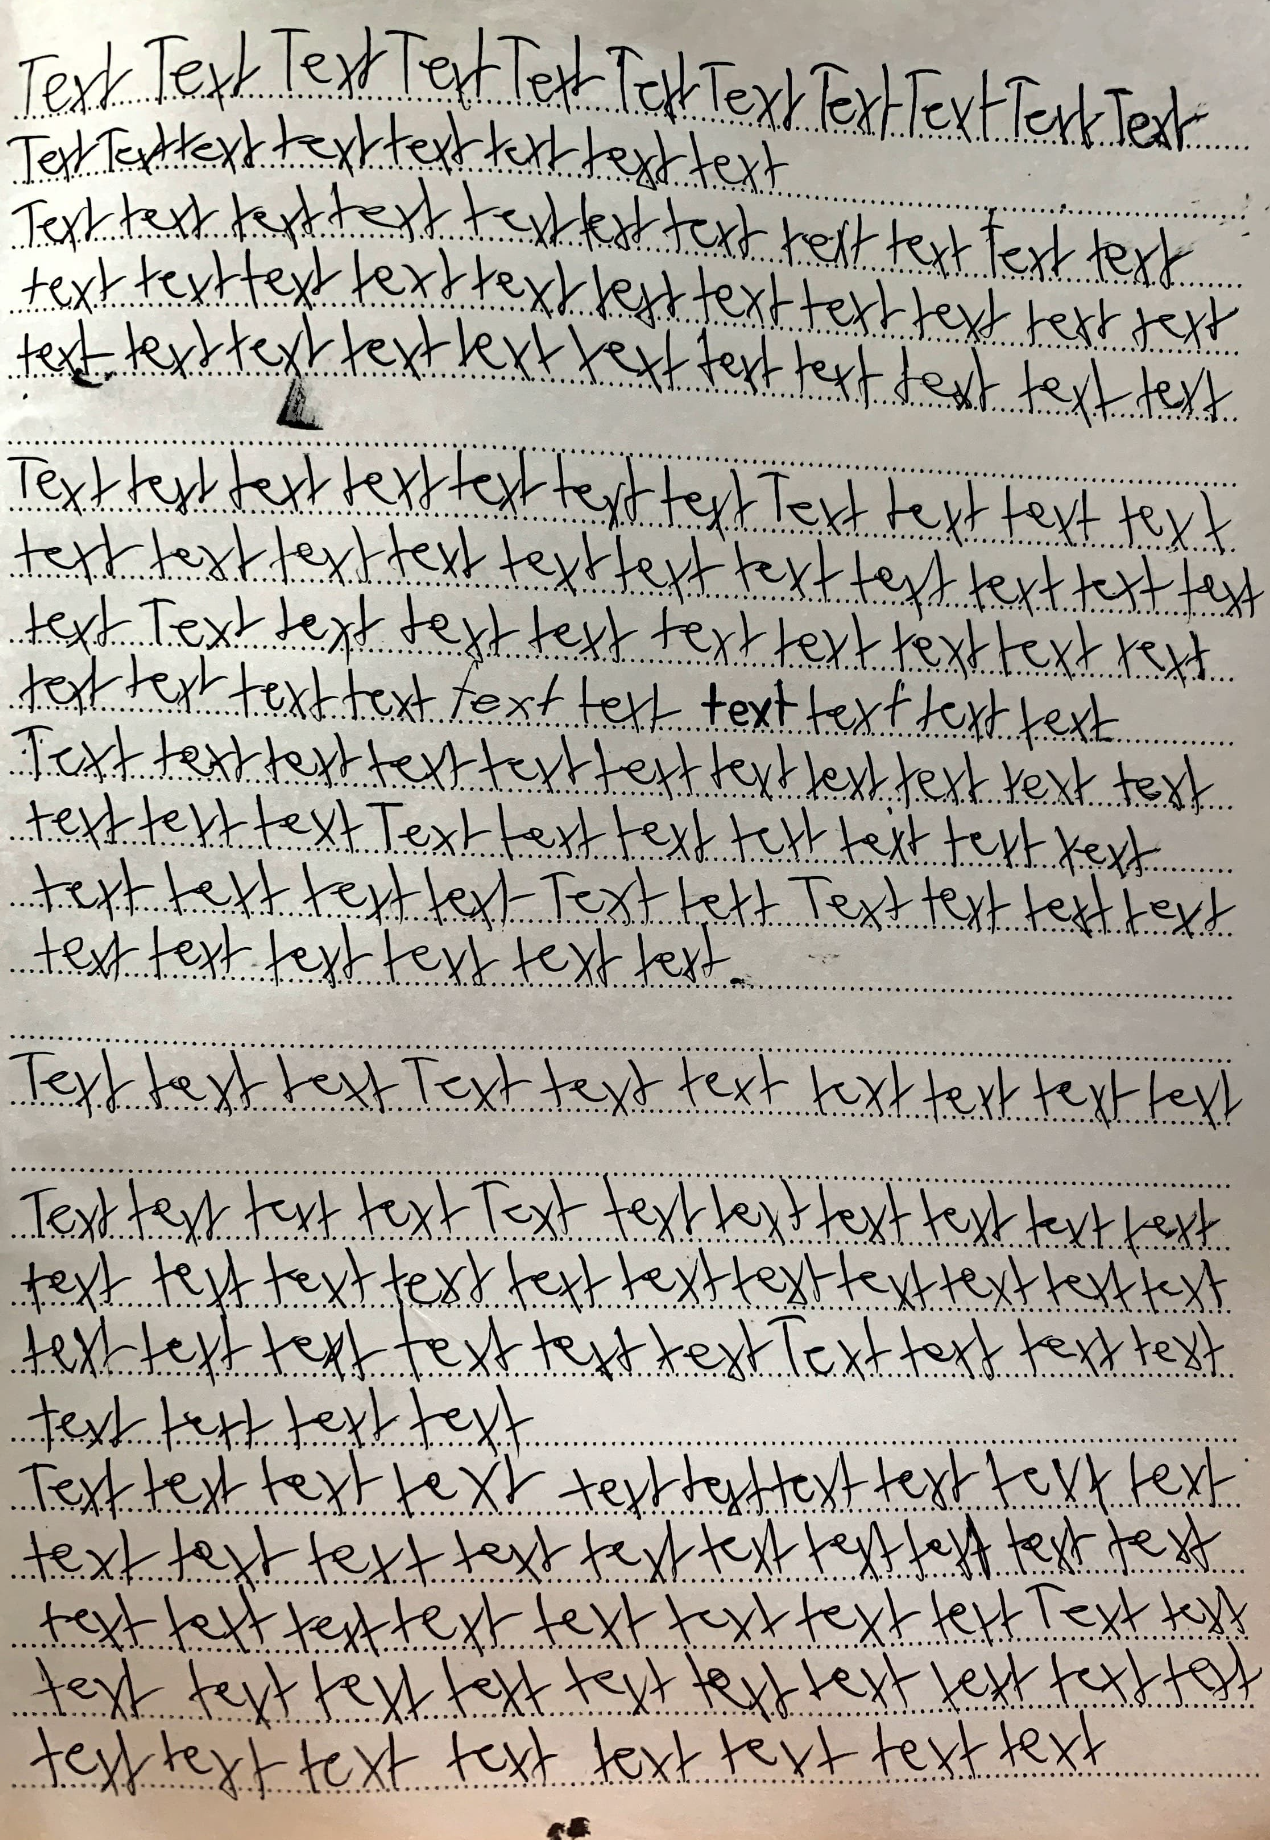 Text Text Text Text Text Text Text Text Text Text Text
Text Text text text text text text text
Text text text text text text text text text Text text
text text text text text text text text text text text
text text text text text text text text text text text
Text text text text text text text Text text text text
text text text text text text text text text text text
text Text text text text text text text text text
text text text text text text text text text text
Text text text text text text text text text text text
text text text Text text text text text text text
text text text text Text text Text text text text
text text text text text text.
Text text text Text text text text text text text
Text text text text Text text text text text text text
text text text text text text text text text text text
text text text text text text Text text text text
text text text text
Text text text text text text text text text text
text text text text text text text text text text
text text text text text text text text Text text
text text text text text text text text text text
text text text text text text text text